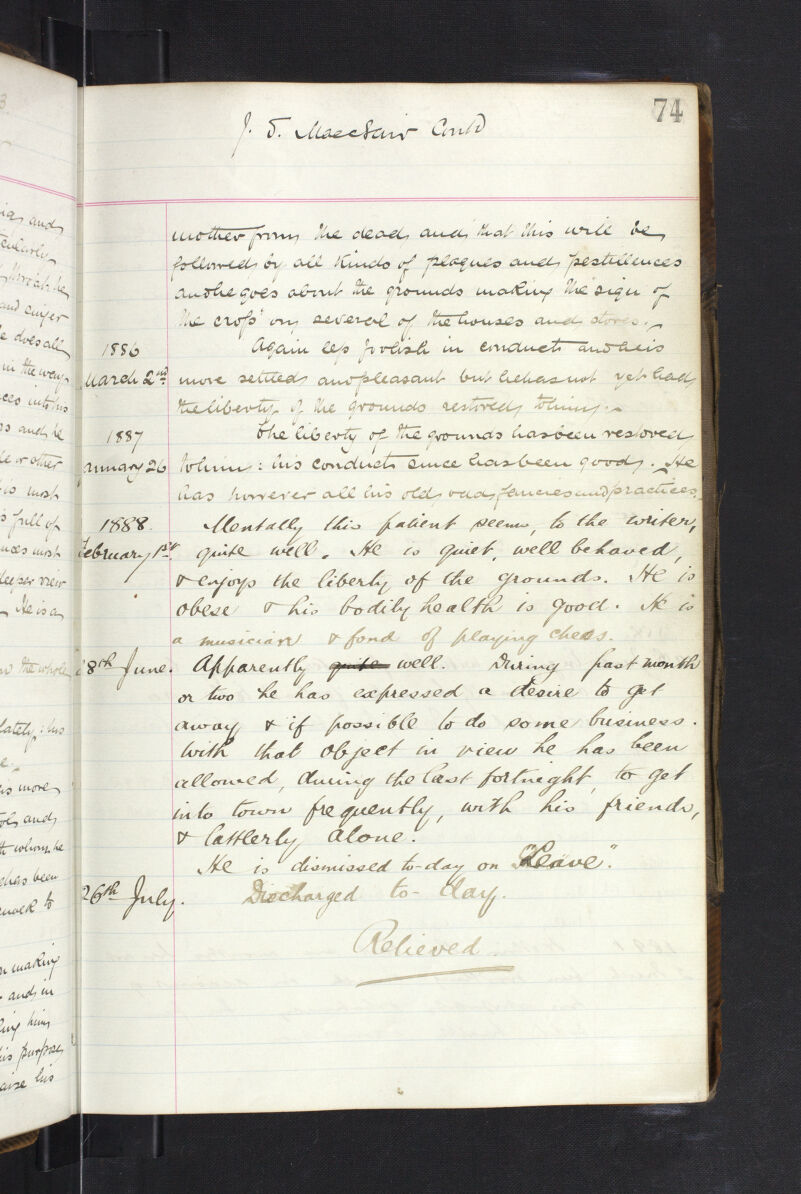 74
J. S. Contd
mother from the dead and that this will be
followed by all kinds of plagues and pestilences
and he goes about the grounds making the sign of
the cross on several of the houses and stores.
1886
March 2nd
Again less foolish in conduct and he is
more settled and pleasant but he has not yet had
the liberty of the grounds restored to him.
1887
January 26
The liberty of the grounds has been restored
to him: his conduct since has been good. He
has however all his old odd fancies and practices.
1888.
February 1st.
Mentally this patient seems, to the writer,
quite well. He is quiet, well behaved,
& enjoys the liberty of the grounds. He is
obese & his bodily health is good. He is
a musician & fond of playing chess.
28th June.
Apparently quite well. During past month
or two he has expressed a desire to get
away & if possible to do some business.
With that object in view he has been
allowed, during the last fortnight, to get
into town frequently, with his friends,
& latterly alone.
He is dismissed to-day on "Leave".
26th July.
Discharged to-day.
Relieved